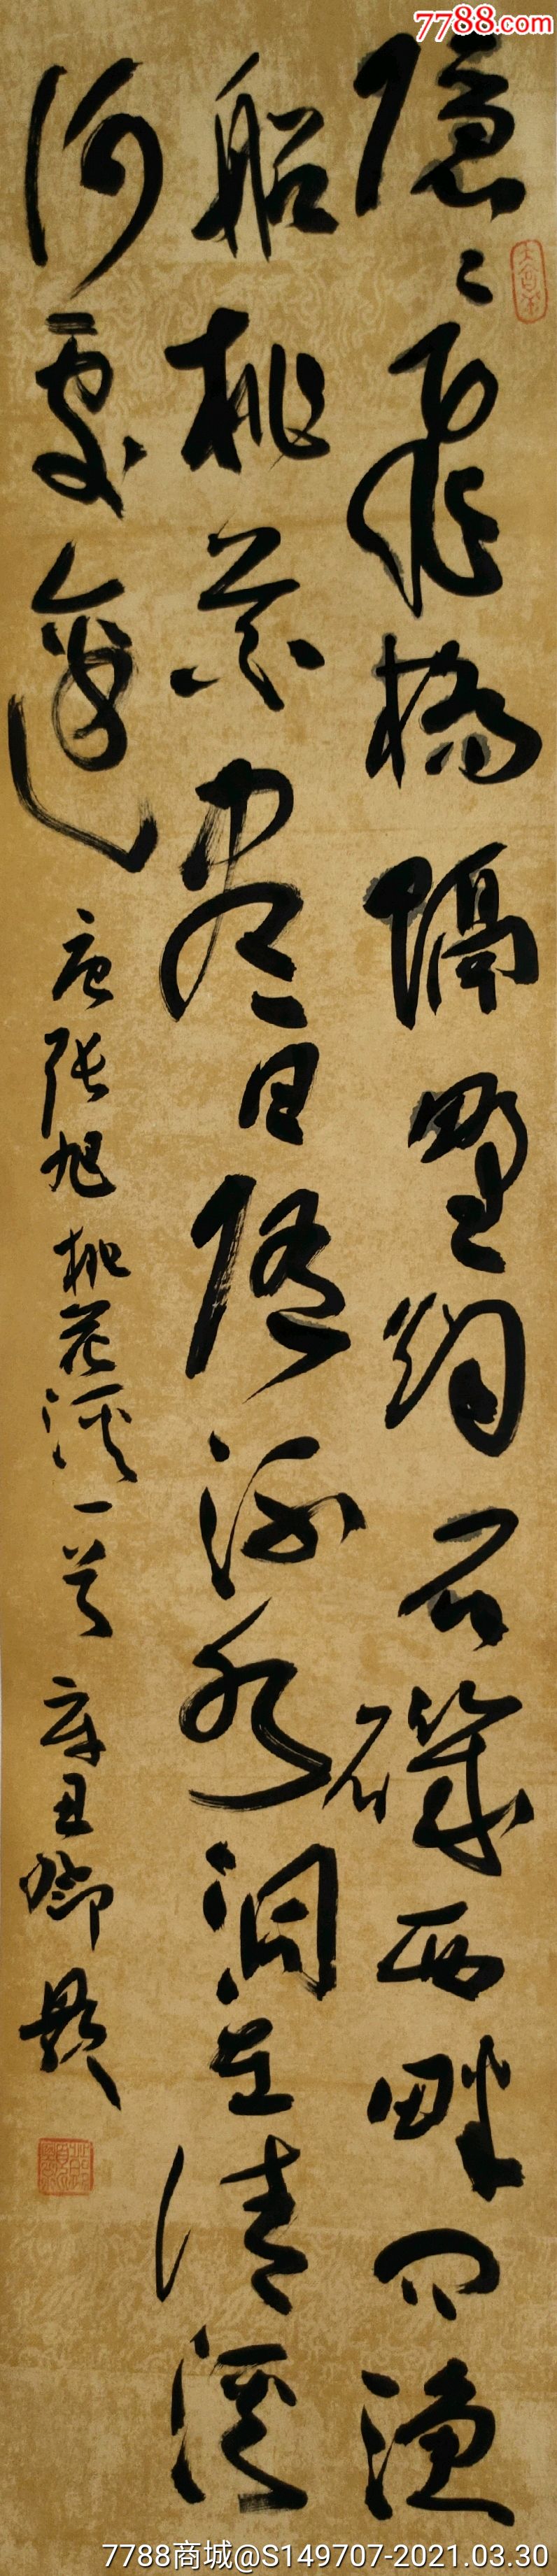 7788.com
隐〻飞桥隔野烟石矶西畔问渔
船桃花尽日随流水洞在清溪
何处边
唐张旭桃花溪一首 辛丑
7788商城@S149707-2021.03.30